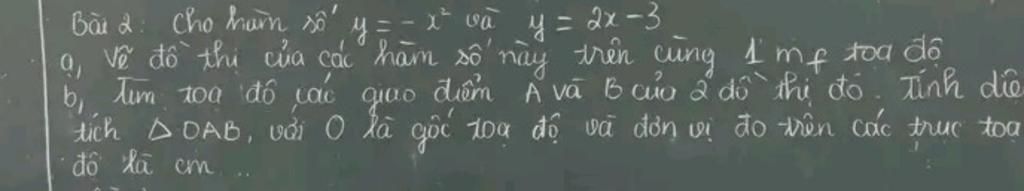 Bài 2: Cho hàm số y = - x² và y = 2x - 3
a, Vẽ đồ thị của các hàm số này trên cùng 1 mf toạ độ
b, Tìm toạ độ các giao điểm A và B của 2 đồ thị đó. Tính diê
tích Δ OAB, với O là gốc toạ độ và đơn vị đo trên các trục toạ
độ là cm ...